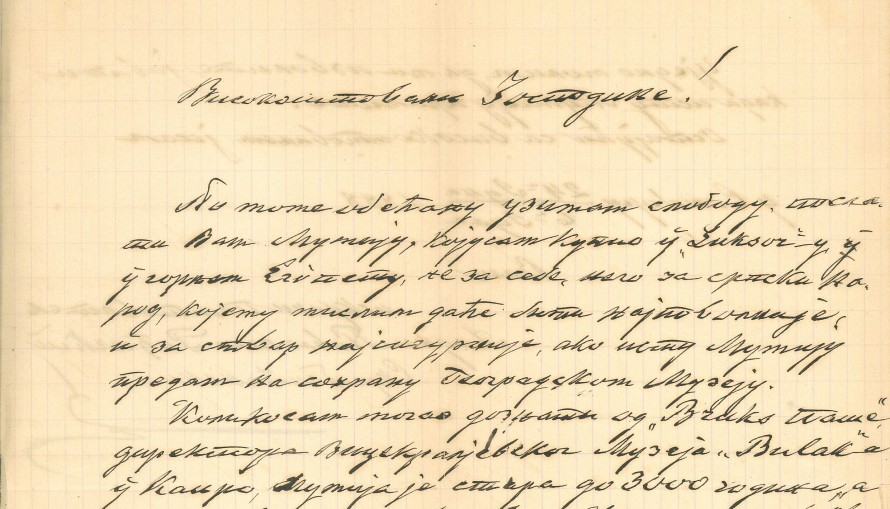 Високоштовани Господине!
По моме обећању узимам слободу, посла-
ти Вам Мумију, којусам купио у „Luksor“-у, у
у горњем Египту, не за себе, него за српски на-
род, којему мислим даће бити најповољније,
и за ствар најсигурније, ако исту Мумију
предам на сохрану Београдском Музеју.
Коликосам могао дознати од „Bruks паше“,
директора Вицекраљевског Музеја „Bulak“-а
у Каиро, Мумија је стара до 3000 година, а